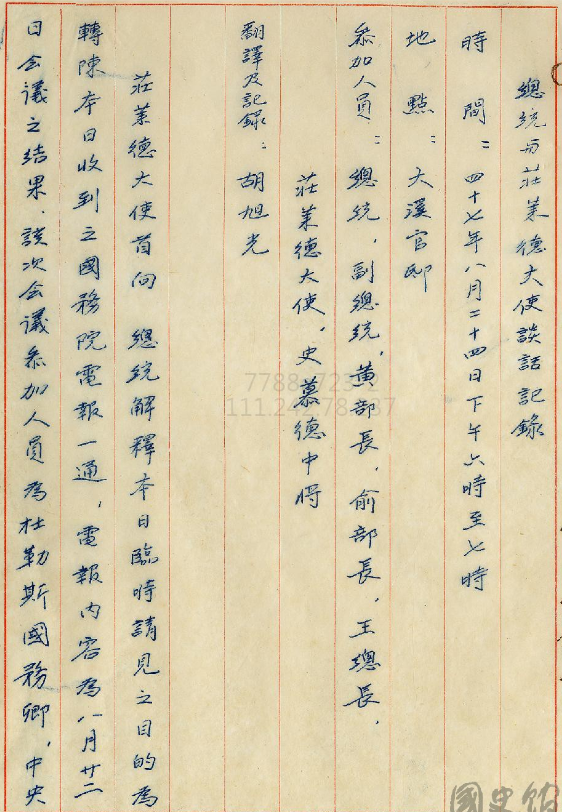 總統與莊萊德大使談話記錄
時間：四十七年八月二十四日下午六時至七時
地點：大溪官邸
參加人員：總統，副總統，黃部長，俞部長，王總長，
莊萊德大使，史慕德中將
翻譯及記錄：胡旭光
莊萊德大使首向　總統解釋本日臨時請見之目的為
轉陳本日收到之國務院電報一通，電報內容為八月廿二
日会議之結果，該次会議參加人員為杜勒斯國務卿，中央
國史館